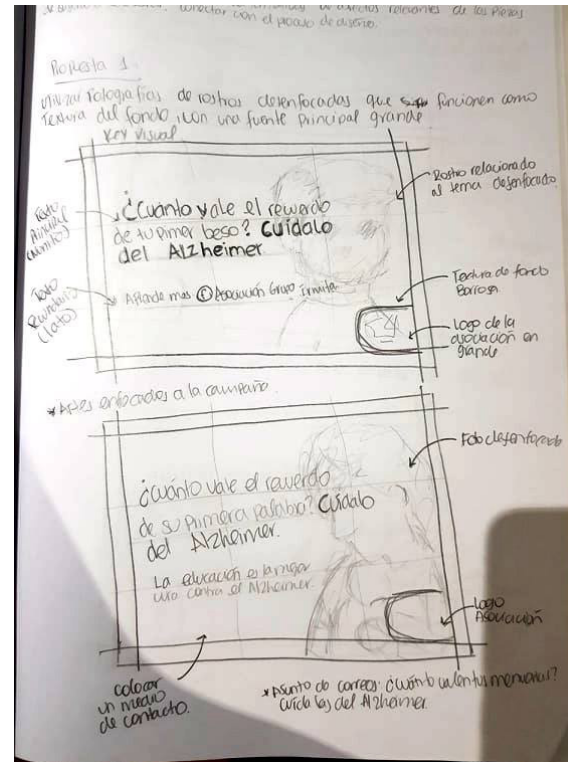 conectar con el proceso de diseño.
Propuesta 1.
Utilizar fotografías de rostros desenfocadas que funcionen como
Textura del fondo, con una fuente principal grande
Key visual
¿Cuánto vale el recuerdo
de tu primer beso? Cuídalo
del Alzheimer
Texto
Principal
Aprende mas Asociación Grupo Ermita
Texto
Secundario
(Lato)
Rostro relacionado
al tema desenfocado.
Textura de fondo
Borrosa
Logo de la
asociación en
grande
*Artes enfocados a la campaña.
¿Cuánto vale el recuerdo
de su primera palabra? Cuídalo
del Alzheimer.
La educación es la mejor
cura contra el Alzheimer.
Foto desenfocada
Logo
Asociación
colocar
un medio
de contacto.
*Asunto de correos: ¿Cuánto valen tus memorias?
Cuídalas del Alzheimer.